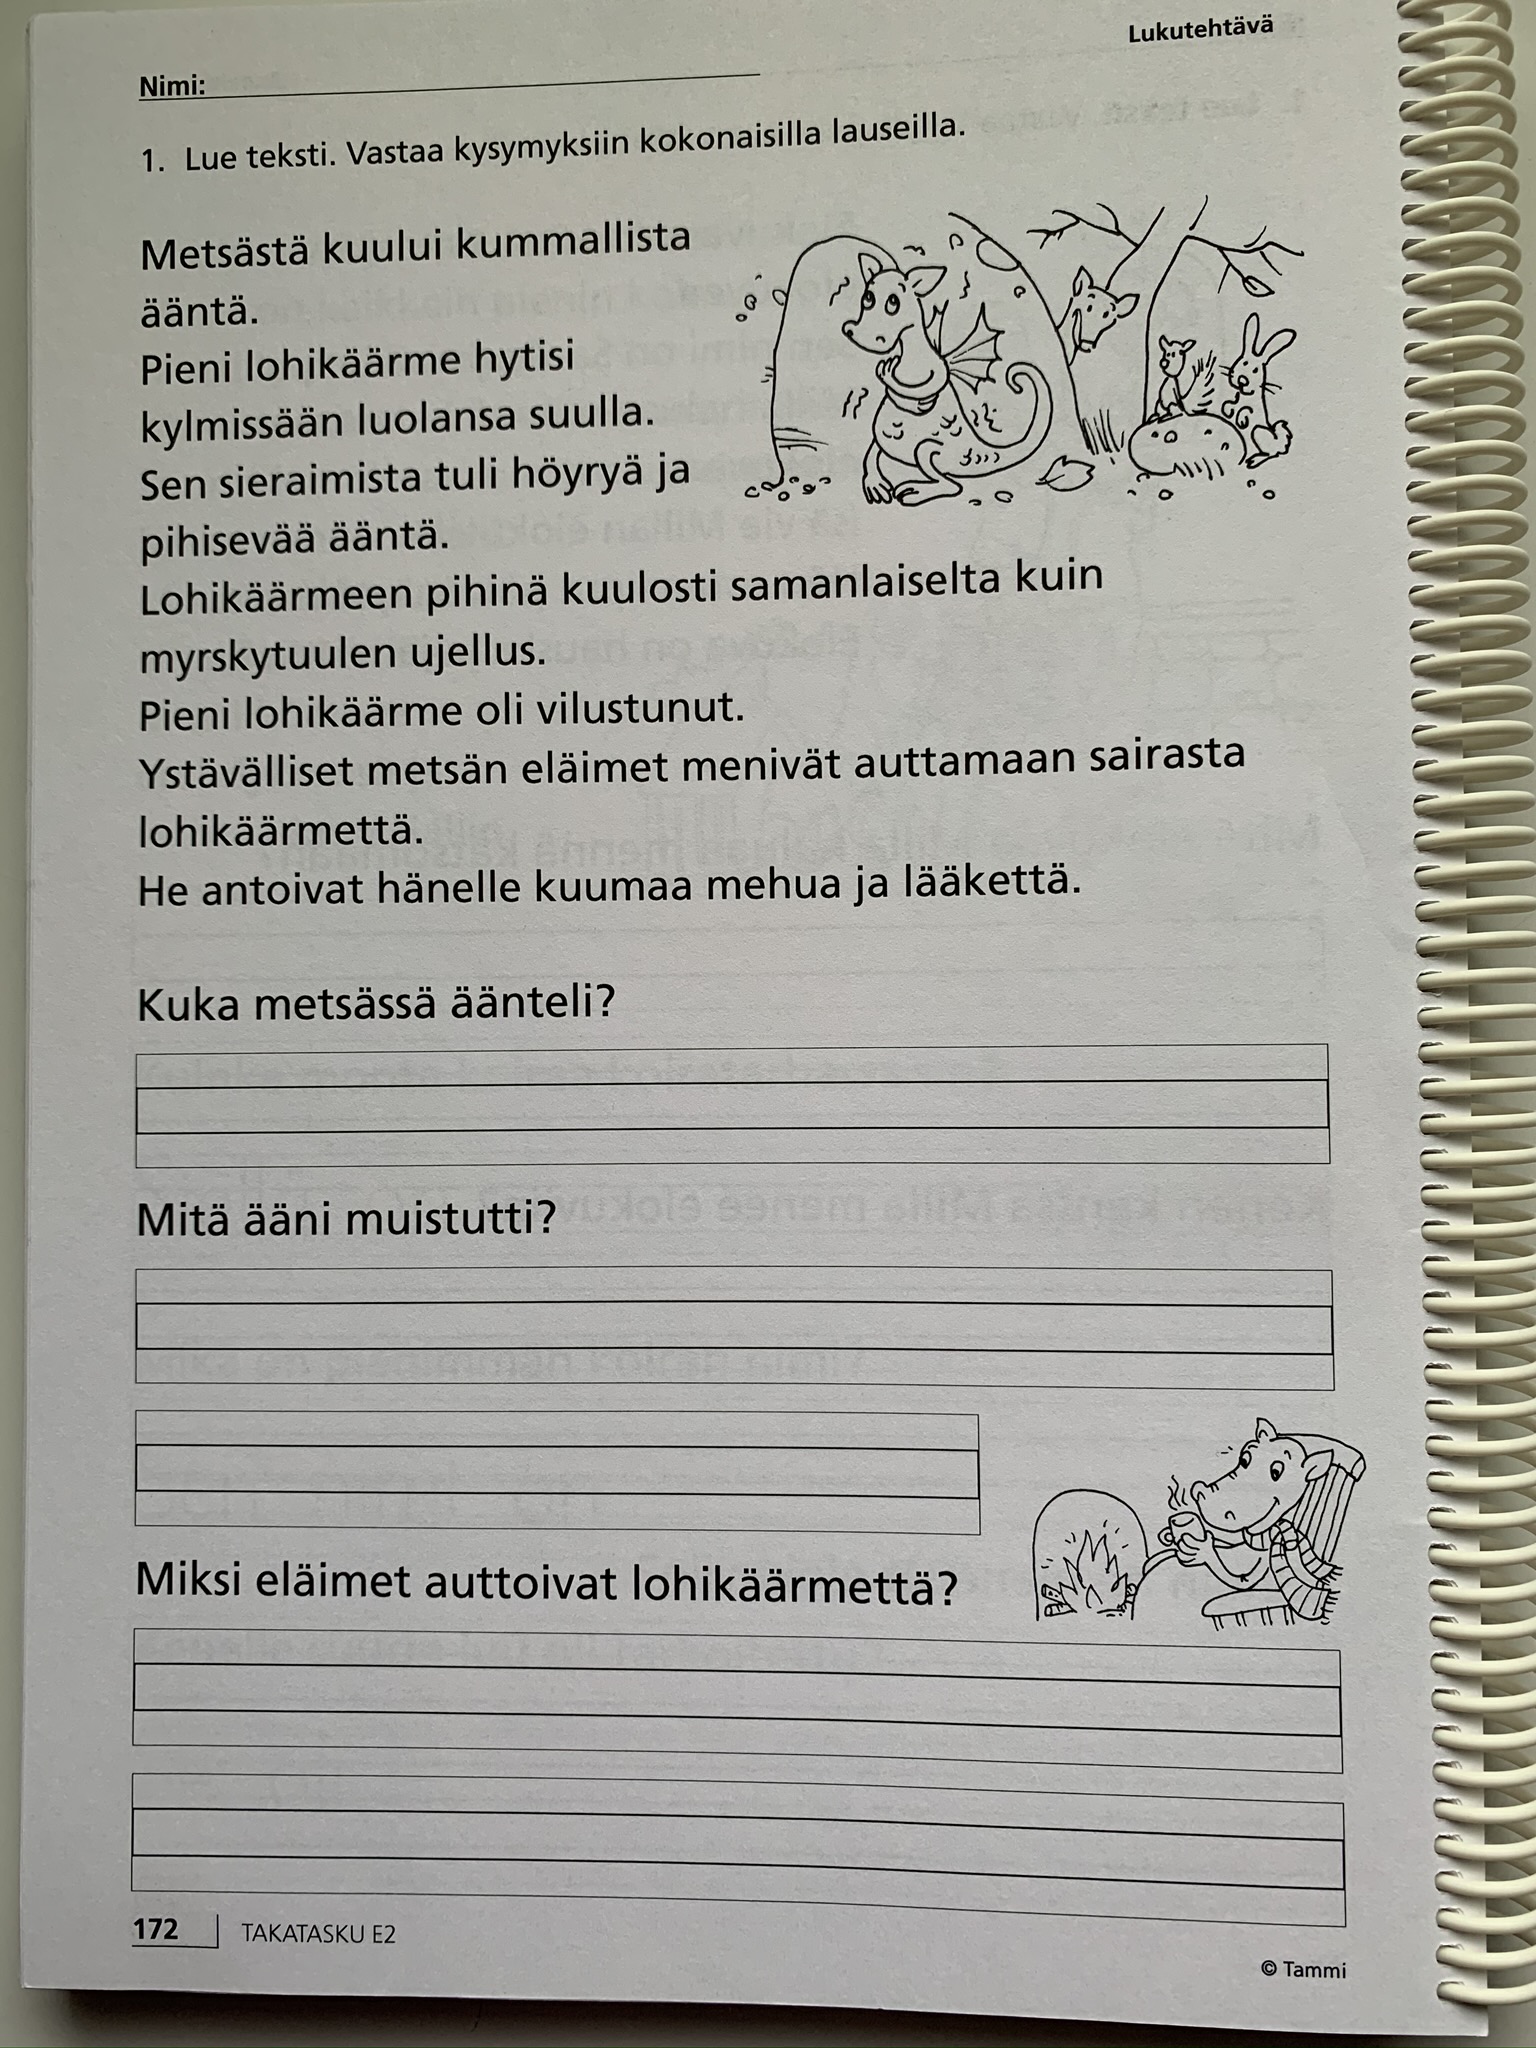 Lukutehtävä
Nimi:
1. Lue teksti. Vastaa kysymyksiin kokonaisilla lauseilla.
Metsästä kuului kummallista
ääntä.
Pieni lohikäärme hytisi
kylmissään luolansa suulla.
Sen sieraimista tuli höyryä ja
pihisevää ääntä.
Lohikäärmeen pihinä kuulosti samanlaiselta kuin
myrskytuulen ujellus.
Pieni lohikäärme oli vilustunut.
Ystävälliset metsän eläimet menivät auttamaan sairasta
lohikäärmettä.
He antoivat hänelle kuumaa mehua ja lääkettä.
Kuka metsässä äänteli?
Mitä ääni muistutti?
Miksi eläimet auttoivat lohikäärmettä?
172 TAKATASKU E2
© Tammi